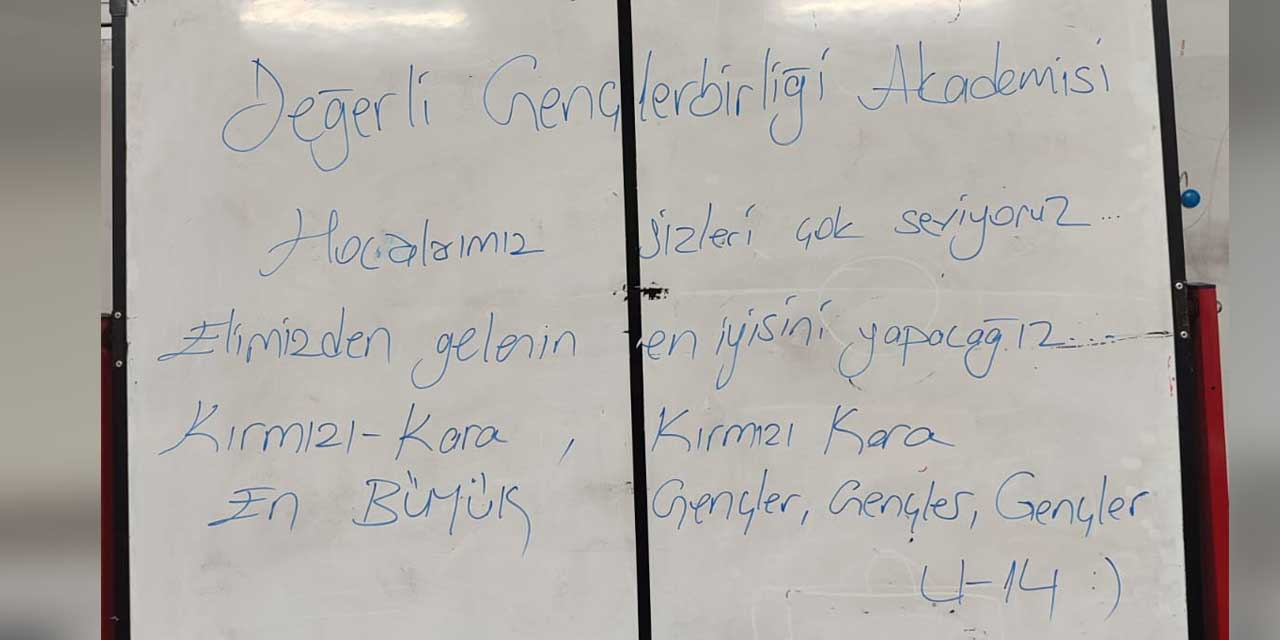 Değerli Gençlerbirliği Akademisi
Hocalarımız sizleri çok seviyoruz...
Elimizden gelenin en iyisini yapacağız....
Kırmızı-Kara, Kırmızı Kara
En BÜYÜK Gençler, Gençler, Gençler
U-14 :)